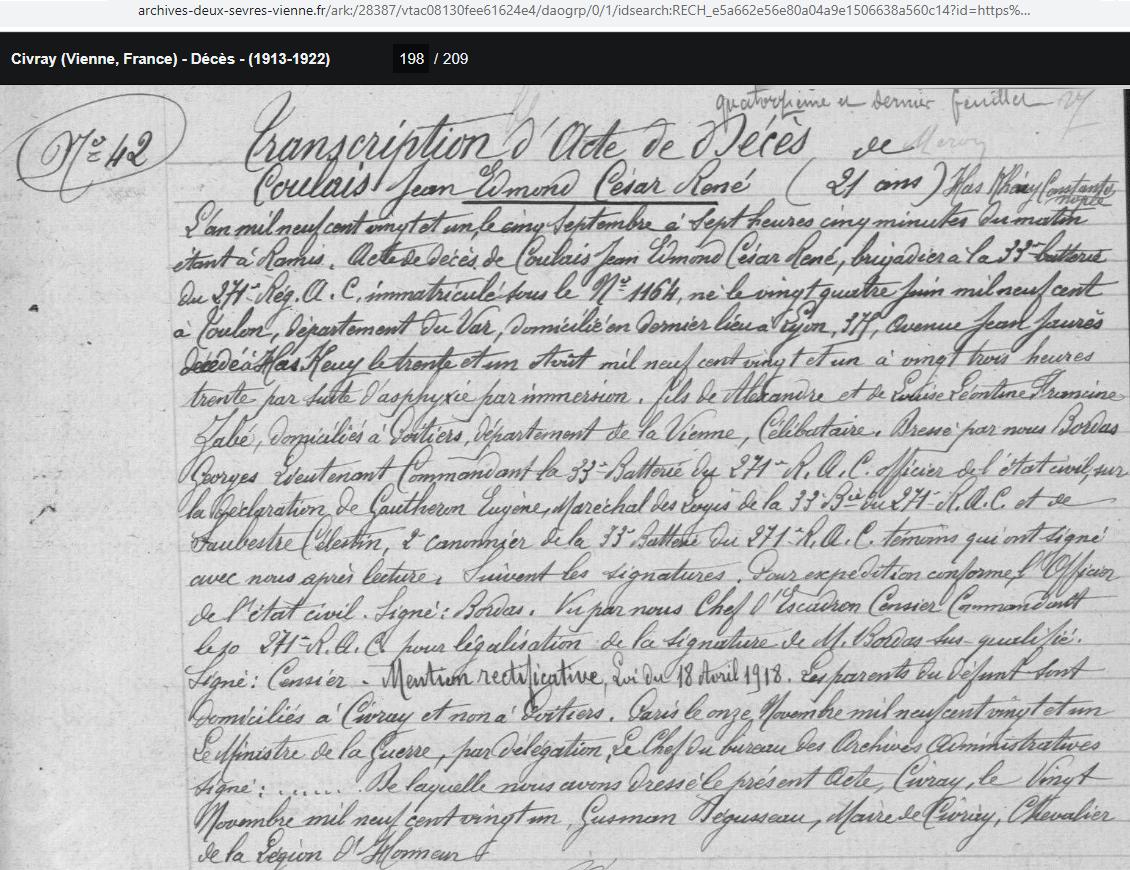 archives-deux-sevres-vienne.fr/ark:/28387/vtac08130fee61624e4/daogrp/0/1/idsearch:RECH_e5a662e56e80a04a9e1506638a560c14?id=https%...
Civray (Vienne, France) - Décès - (1913-1922) 198 / 209
quatorzième et dernier feuillet
N° 42
Transcription d'Acte de Décès de
Coulais Jean Edmond César René (21 ans) Has Constantinople
L'an mil neuf cent vingt et un, le cinq Septembre à Sept heures cinq minutes du matin
étant à Ramis. Acte de décès de Coulais Jean Edmond César René, brigadier à la 33e batterie
du 271e Rég. A. C. immatriculé sous le N° 1164, né le vingt quatre Juin mil neuf cent
à Toulon, département du Var, domicilié en dernier lieu à Lyon, 37, avenue Jean Jaurès
décédé à Has Keuy le trente et un Août mil neuf cent vingt et un à vingt trois heures
trente par suite d'aspyxie par immersion. fils de Alexandre et de Louise Léontine Francine
Zabé, domiciliés à Poitiers, département de la Vienne, Célibataire. Dressé par nous Bordas
Georges Lieutenant Commandant la 33e Batterie du 271e R. A. C. officier de l'état civil, sur
la déclaration de Gautheron Eugène, Maréchal des Logis de la 33e Bie du 271e R.A.C. et de
Faubestre Célestin, 2e canonnier de la 33e Batterie du 271e R. A. C. témoins qui ont signé
avec nous après lecture. Suivent les signatures. Pour expédition conforme l'Officier
de l'état civil. Signé : Bordas. Vu par nous Chef d'Escadron Censier Commandant
le 271e R. A. C. pour légalisation de la signature de M. Bordas sus-qualifié.
Signé : Censier - Mention rectificative, Loi du 18 Avril 1918. Les parents du défunt sont
domiciliés à Civray et non à Poitiers. Paris le onze Novembre mil neuf cent vingt et un
Le Ministre de la Guerre, par délégation, Le Chef du bureau des Archives Administratives
Signé : ...... De laquelle nous avons dressé le présent Acte, Civray, le Vingt
Novembre mil neuf cent vingt un, Gusman Pégusseau, Maire de Civray, Chevalier
de la Légion d'Honneur